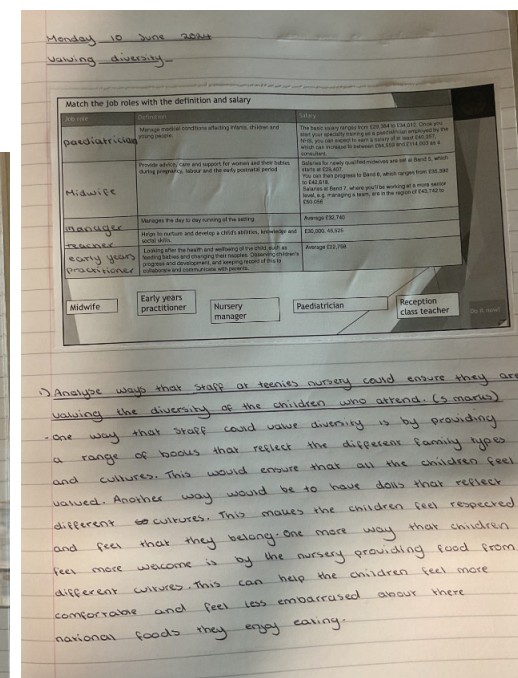 Monday 10 June 2024
valuing diversity
Match the job roles with the definition and salary
Job role
Definition
Salary
paediatrician
Manage medical conditions affecting infants, children and
young people.
The basic salary ranges from
start your specialty training as a paediatrician employed by the
NHS, you can expect to earn a salary of at least
which can increase to between
consultant.
Midwife
Provide advice, care and support for women and their babies
during pregnancy, labour and the early postnatal period
Salaries for newly qualified midwives are set at Band 5, which
starts at
You can then progress to Band 6, which ranges from
to
Salaries at Band 7, where you'll be working at a more senior
level, e.g. managing a team, are in the region of
manager
Manages the day to day running of the setting.
Average
teacher
Helps to nurture and develop a child's abilities, knowledge and
social skills.
early years
practitioner
Looking after the health and wellbeing of the child, such as
feeding babies and changing their nappies. Observing children's
progress and development, and keeping record of this to
collaborate and communicate with parents.
Average
Midwife
Early years
practitioner
Nursery
manager
Paediatrician
Reception
class teacher
Do it now!
1) Analyse ways that staff at teenies nursery could ensure they are
valuing the diversity of the children who attend. (5 marks)
- One way that staff could value diversity is by providing
a range of books that reflect the different family types
and cultures. This would ensure that all the children feel
valued. Another way would be to have dolls that reflect
different cultures. This makes the children feel respected
and feel that they belong. One more way that children
feel more welcome is by the nursery providing food from
different cultures. This can help the children feel more
comfortable and feel less embarrased about there
national foods they enjoy eating.